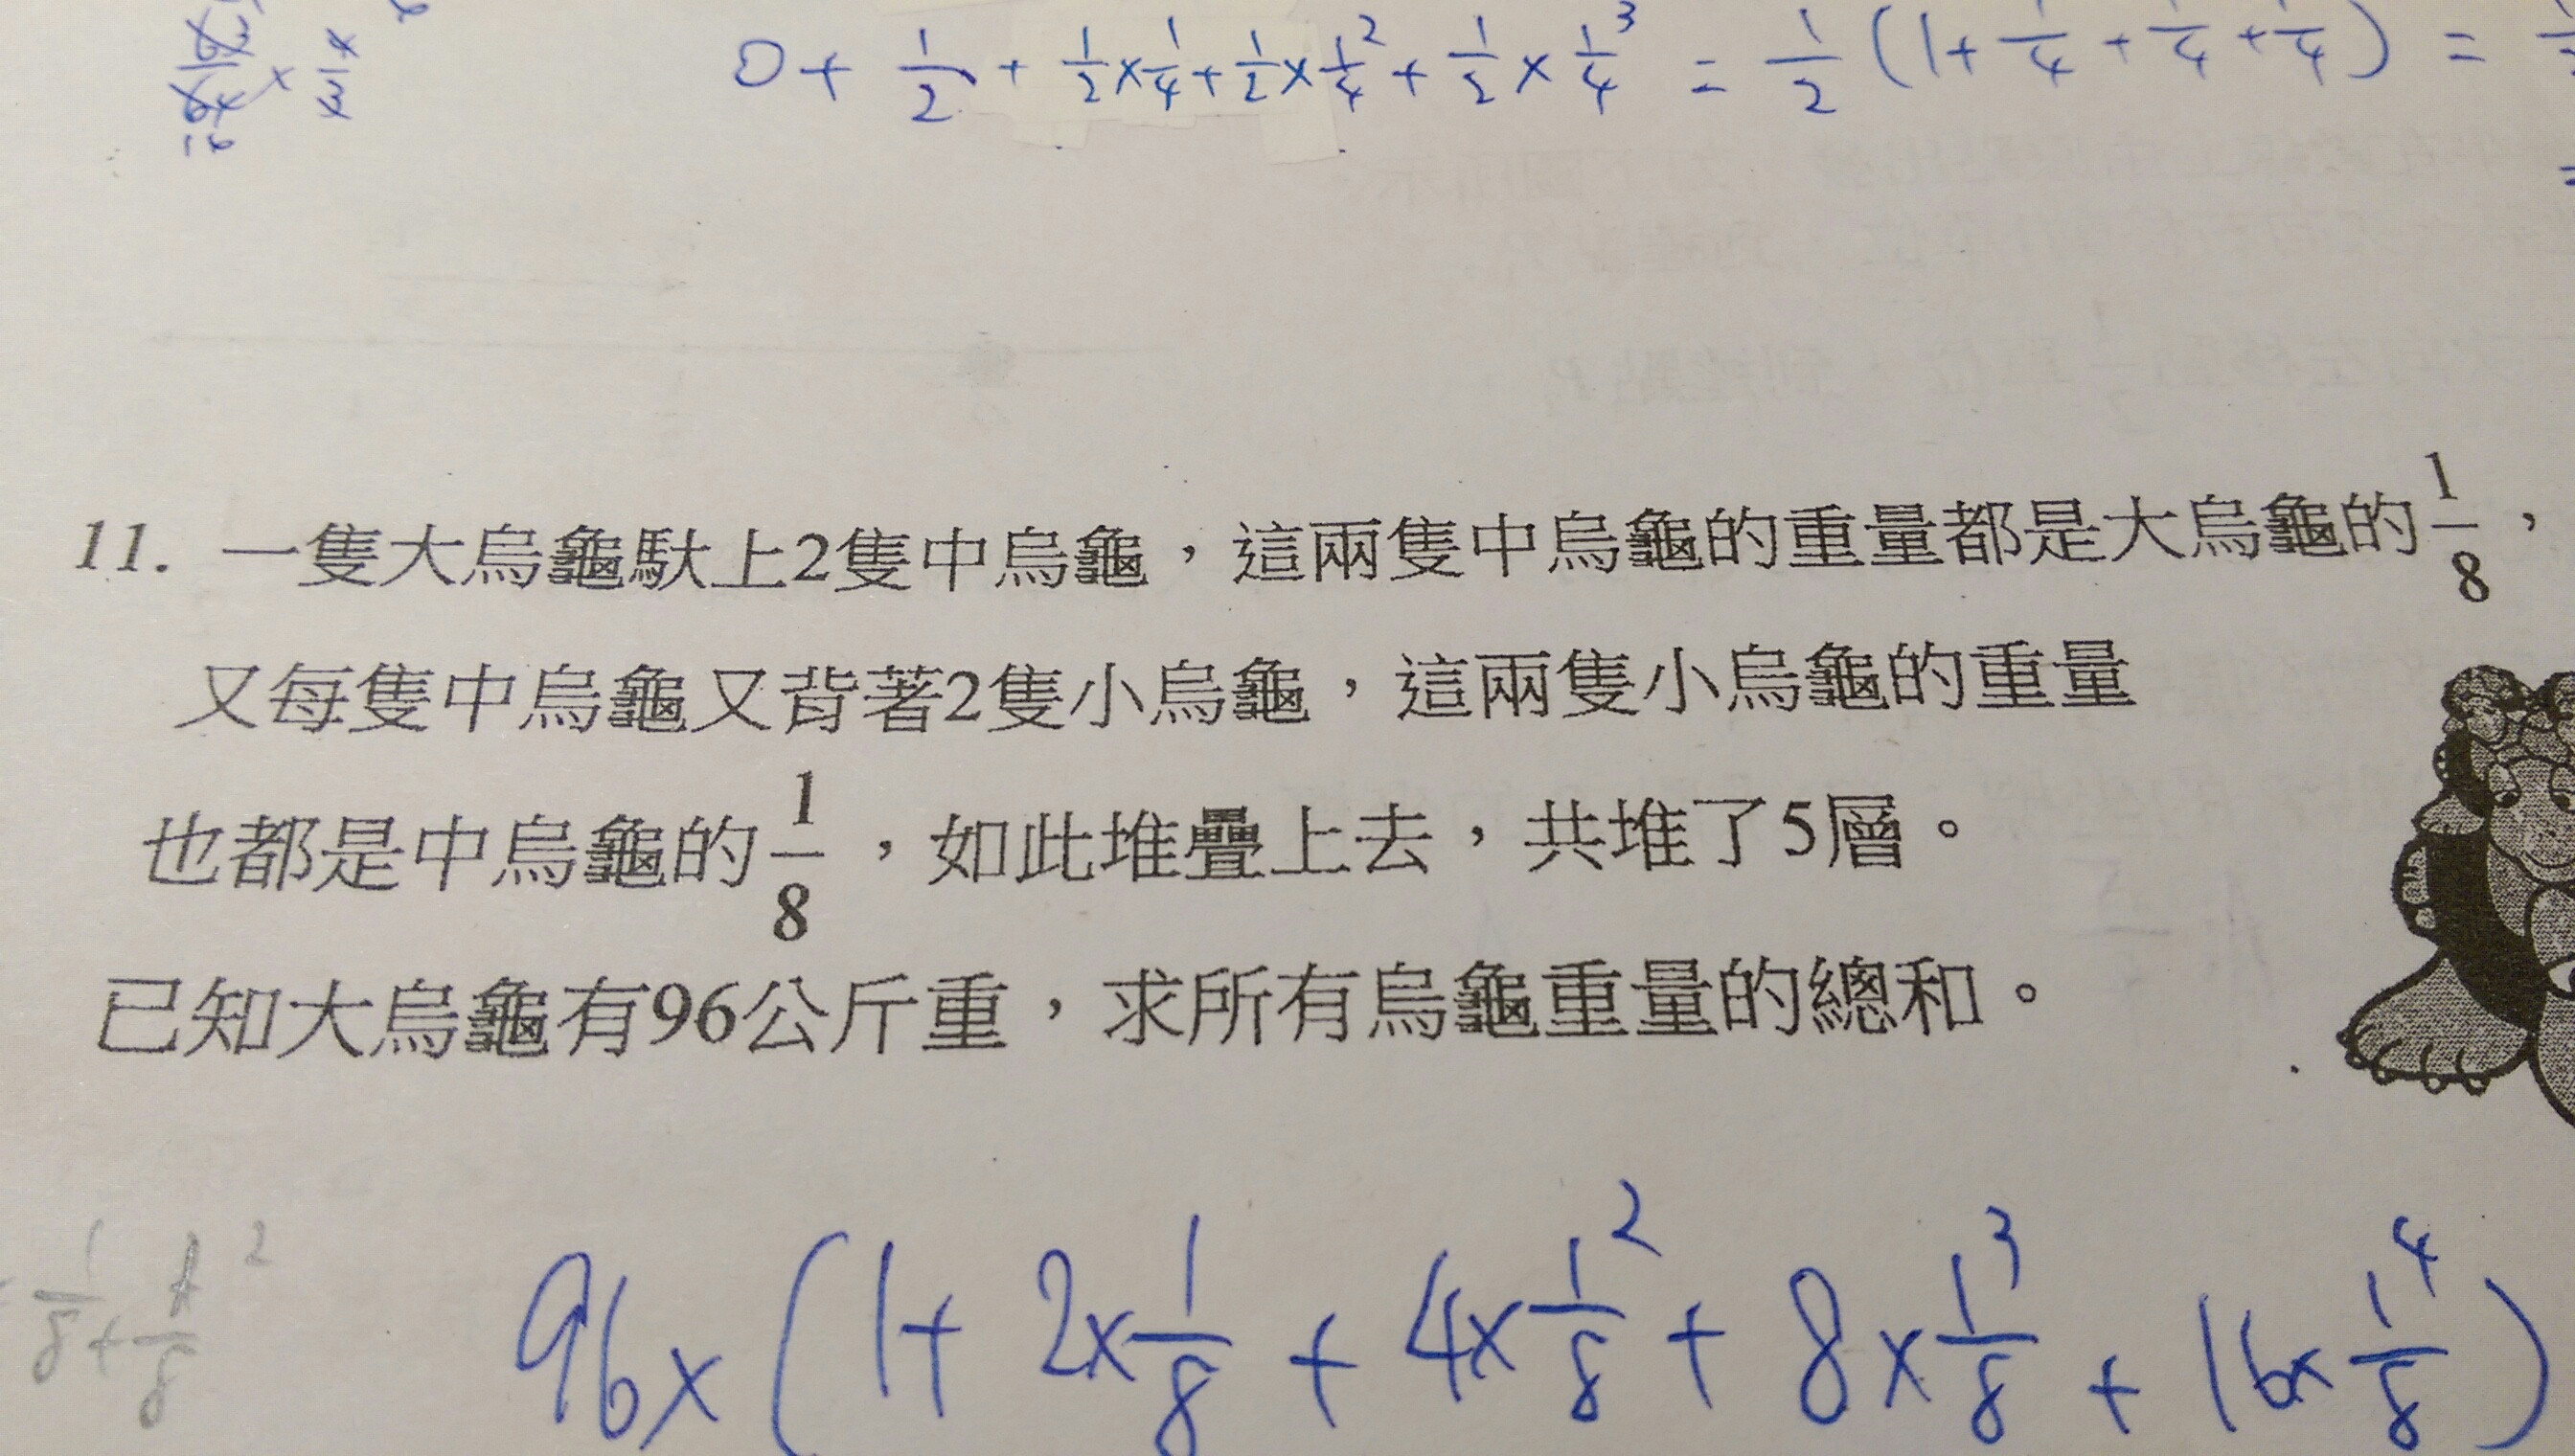 0 + 1/2 + 1/2 × 1/4 + 1/2 × 1/4² + 1/2 × 1/4³ = 1/2 (1 + 1/4 + 1/4 + 1/4) =
11. 一隻大烏龜馱上2隻中烏龜，這兩隻中烏龜的重量都是大烏龜的1/8，
又每隻中烏龜又背著2隻小烏龜，這兩隻小烏龜的重量
也都是中烏龜的1/8，如此堆疊上去，共堆了5層。
已知大烏龜有96公斤重，求所有烏龜重量的總和。
96 × (1 + 2 × 1/8 + 4 × 1/8² + 8 × 1/8³ + 16 × 1/8⁴)